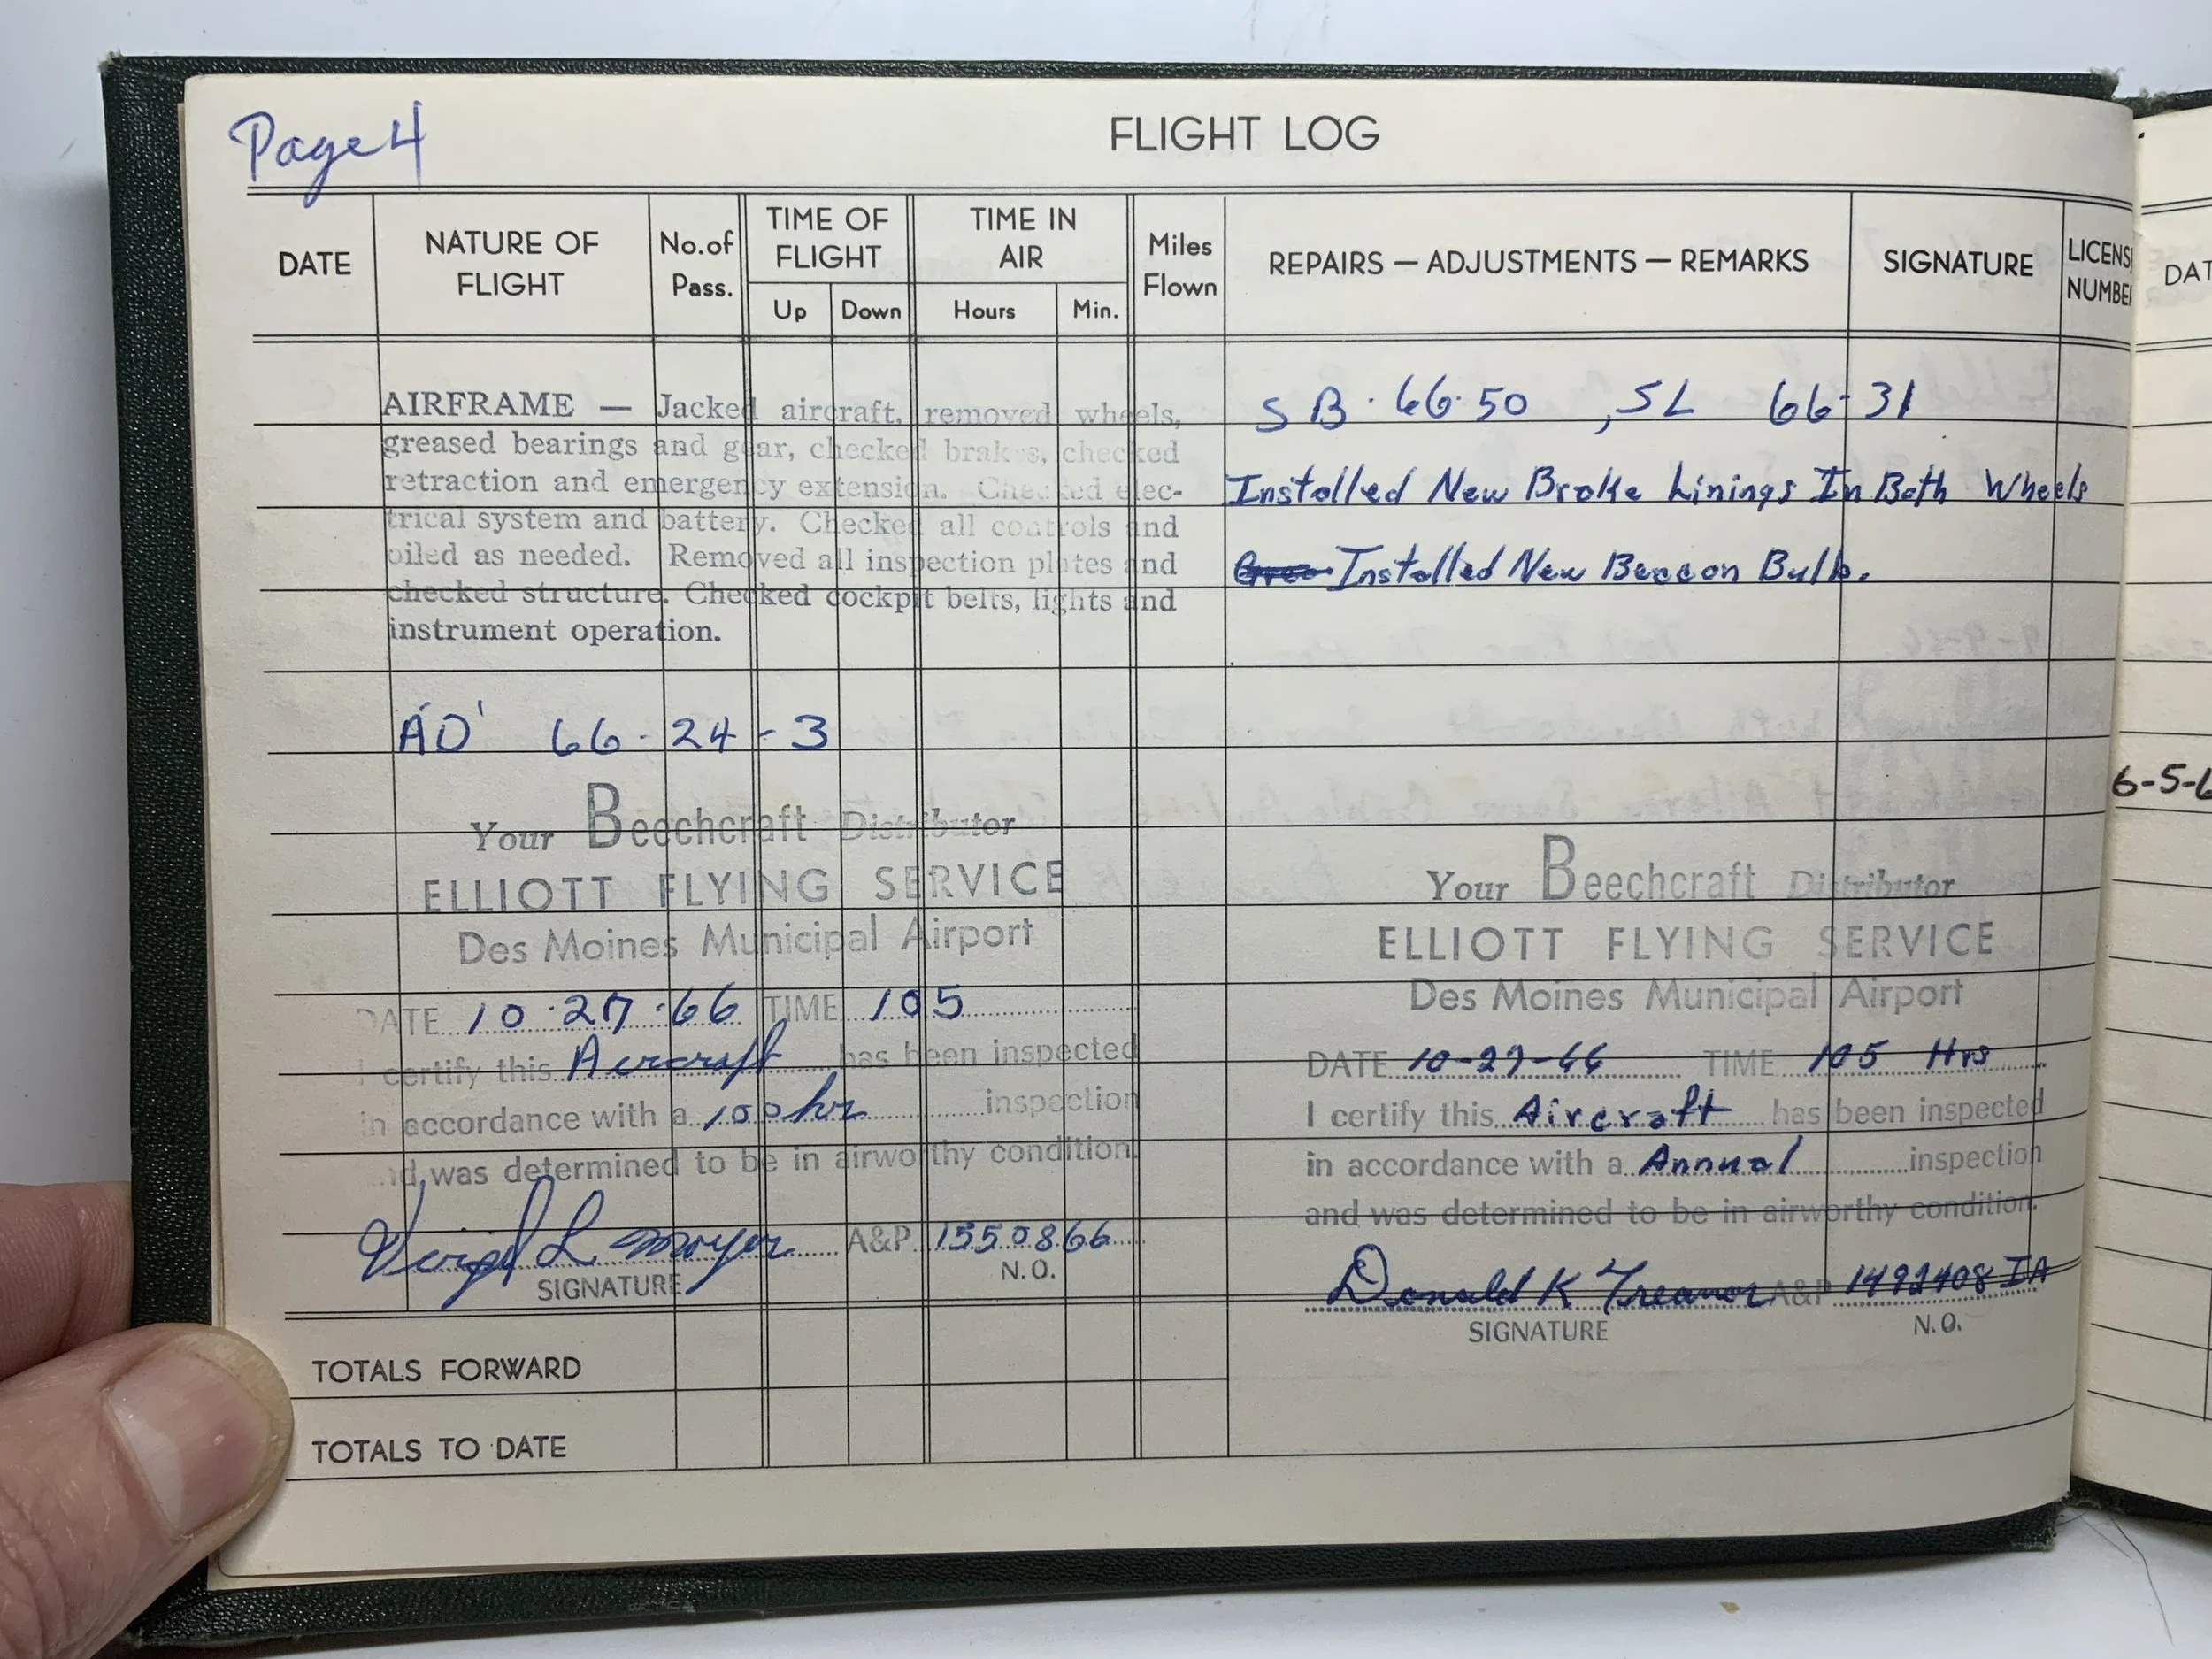 Page 4
FLIGHT LOG
DATE
NATURE OF FLIGHT
No. of Pass.
TIME OF FLIGHT
Up
Down
TIME IN AIR
Hours
Min.
Miles Flown
REPAIRS — ADJUSTMENTS — REMARKS
SIGNATURE
LICENS
NUMBE
DAT
AIRFRAME — Jacked aircraft, removed wheels,
greased bearings and gear, checked brakes, checked
retraction and emergency extension. Checked elec-
trical system and battery. Checked all controls and
oiled as needed. Removed all inspection plates and
checked structure. Checked cockpit belts, lights and
instrument operation.
AD 66-24-3
Your Beechcraft Distributor
ELLIOTT FLYING SERVICE
Des Moines Municipal Airport
DATE 10-27-66 TIME 105
I certify this Aircraft has been inspected
in accordance with a 100 hr inspection
nd was determined to be in airworthy condition.
Virgil L. Moyer A&P 1550866
SIGNATURE N.O.
SB·66·50 , SL 66-31
Installed New Brake Linings In Both Wheels
Installed New Beacon Bulb.
Your Beechcraft Distributor
ELLIOTT FLYING SERVICE
Des Moines Municipal Airport
DATE 10-27-66 TIME 105 Hrs
I certify this Aircraft has been inspected
in accordance with a Annual inspection
and was determined to be in airworthy condition.
Donald K Treanor A&P 1492408 IA
SIGNATURE N.O.
TOTALS FORWARD
TOTALS TO DATE
6-5-6